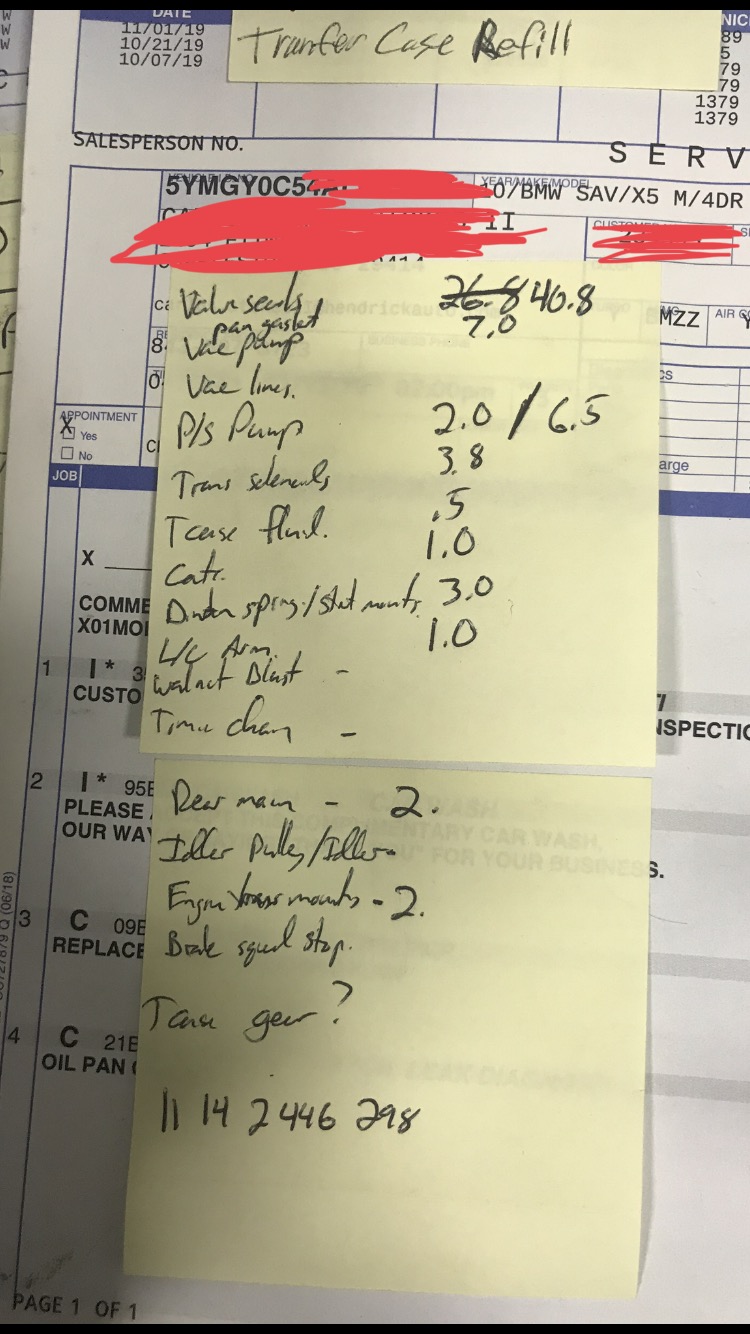 DATE
11/01/19
10/21/19
10/07/19
Tranfer Case Refill
NIC
89
5
79
79
1379
1379
SALESPERSON NO.
SERV
5YMGY0C54
YEAR/MAKE/MODEL
10/BMW SAV/X5 M/4DR
II
Valve seals 26.8 40.8
pan gasket 7.0
Vac pump
Vac lines.
P/S Pump 2.0 / 6.5
Trans solenoids 3.8
Tcase fluid. .5
Catr. 1.0
spring/strut mounts 3.0
L/C Arm. 1.0
Walnut Blast -
Timin chain -
MZZ
AIR CO
APPOINTMENT
X
Yes
No
JOB
arge
X
COMME
X01MO
1 I* 3
CUSTO
NSPECTIO
2 I* 95E
PLEASE
OUR WA
S.
3 C 09E
REPLACE
4 C 21E
OIL PAN
Rear main - 2.
Idler Pulley/Idler-
Engin trans mounts - 2.
Brake squeal stop.
Tcase gear?
11 14 2 446 298
PAGE 1 OF 1